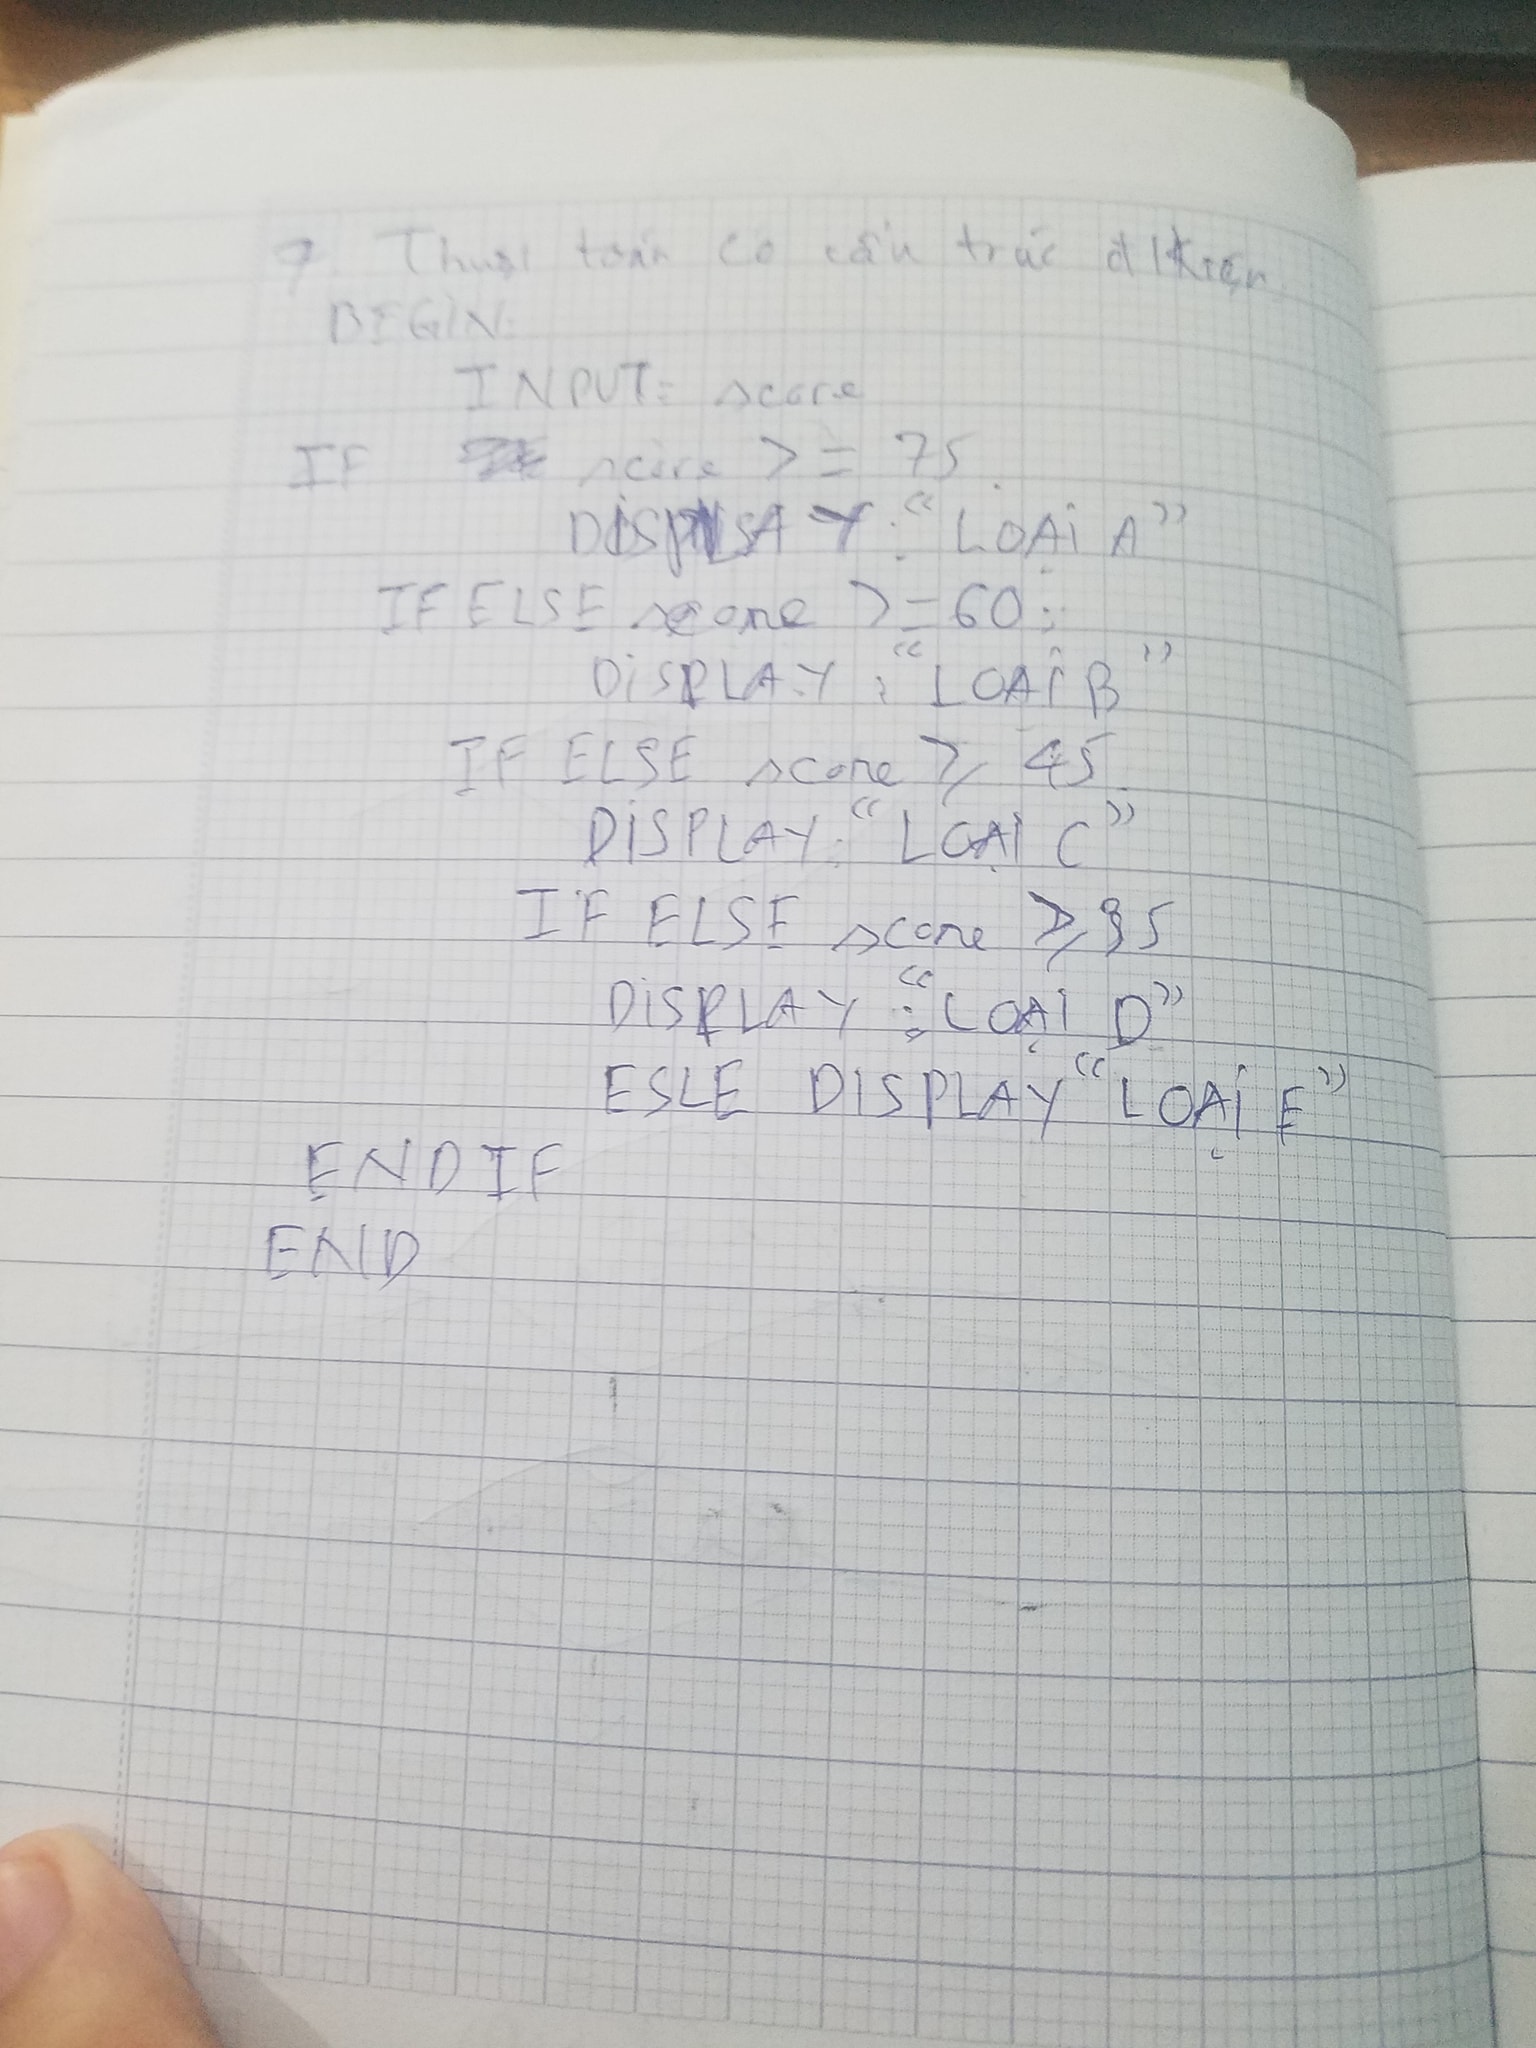 9. Thuật toán có cấu trúc đ/kiện
BEGIN:
INPUT: score
IF score >= 75
DISPLAY: "LOẠI A"
IF ELSE score >= 60:
DISPLAY: "LOẠI B"
IF ELSE score ≥ 45
DISPLAY: "LOẠI C"
IF ELSE score ≥ 35
DISPLAY: "LOẠI D"
ESLE DISPLAY "LOẠI E"
END IF
END